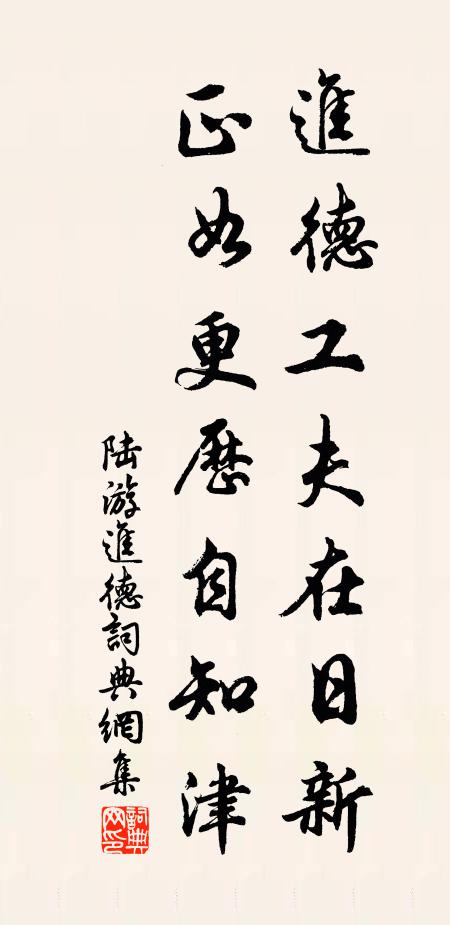 進德工夫在日新
正如更歷自知津
陆游進德詞典網集
詞典网印